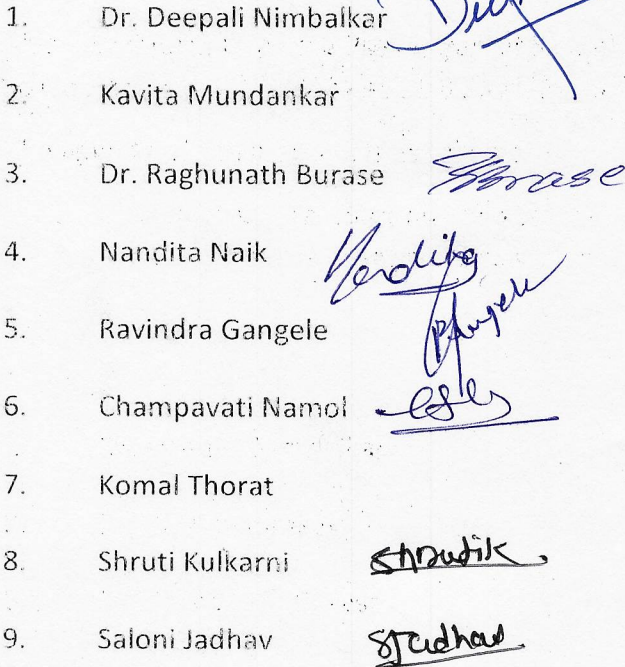 1. Dr. Deepali Nimbalkar
2. Kavita Mundankar
3. Dr. Raghunath Burase Burase
4. Nandita Naik Nandita
5. Ravindra Gangele
6. Champavati Namol
7. Komal Thorat
8. Shruti Kulkarni Shrutik
9. Saloni Jadhav SJadhav